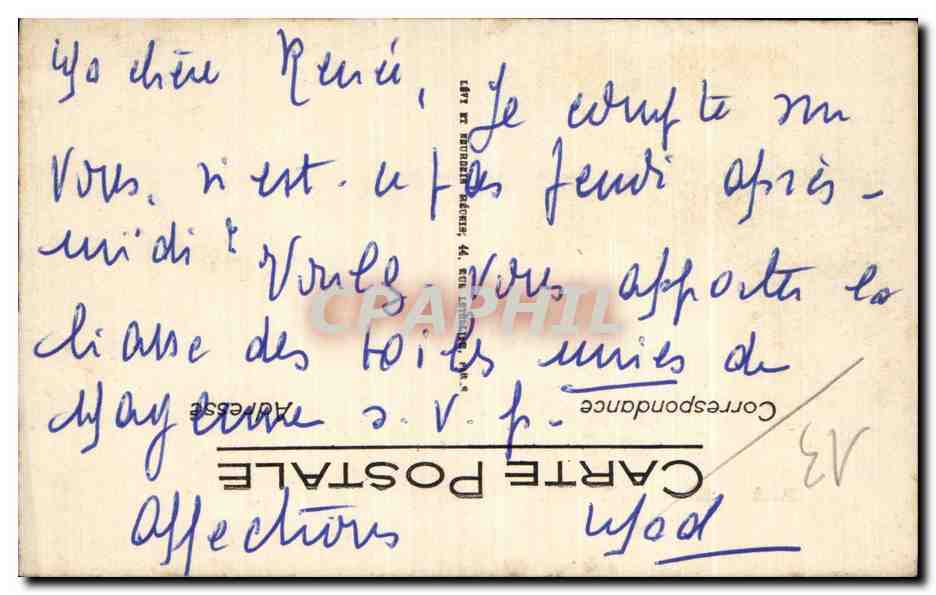 Ma chère Renée, Je compte sur
vous, n'est-ce pas Jeudi après-
midi ? Voulez-vous apporter la
liasse des toiles unies de
Mayenne s.v.p.
Affections Mad
CARTE POSTALE
Correspondance
Adresse
LÉVY ET NEURDEIN RÉUNIS, 44, RUE LETELLIER, PARIS
CPAPHIL
13